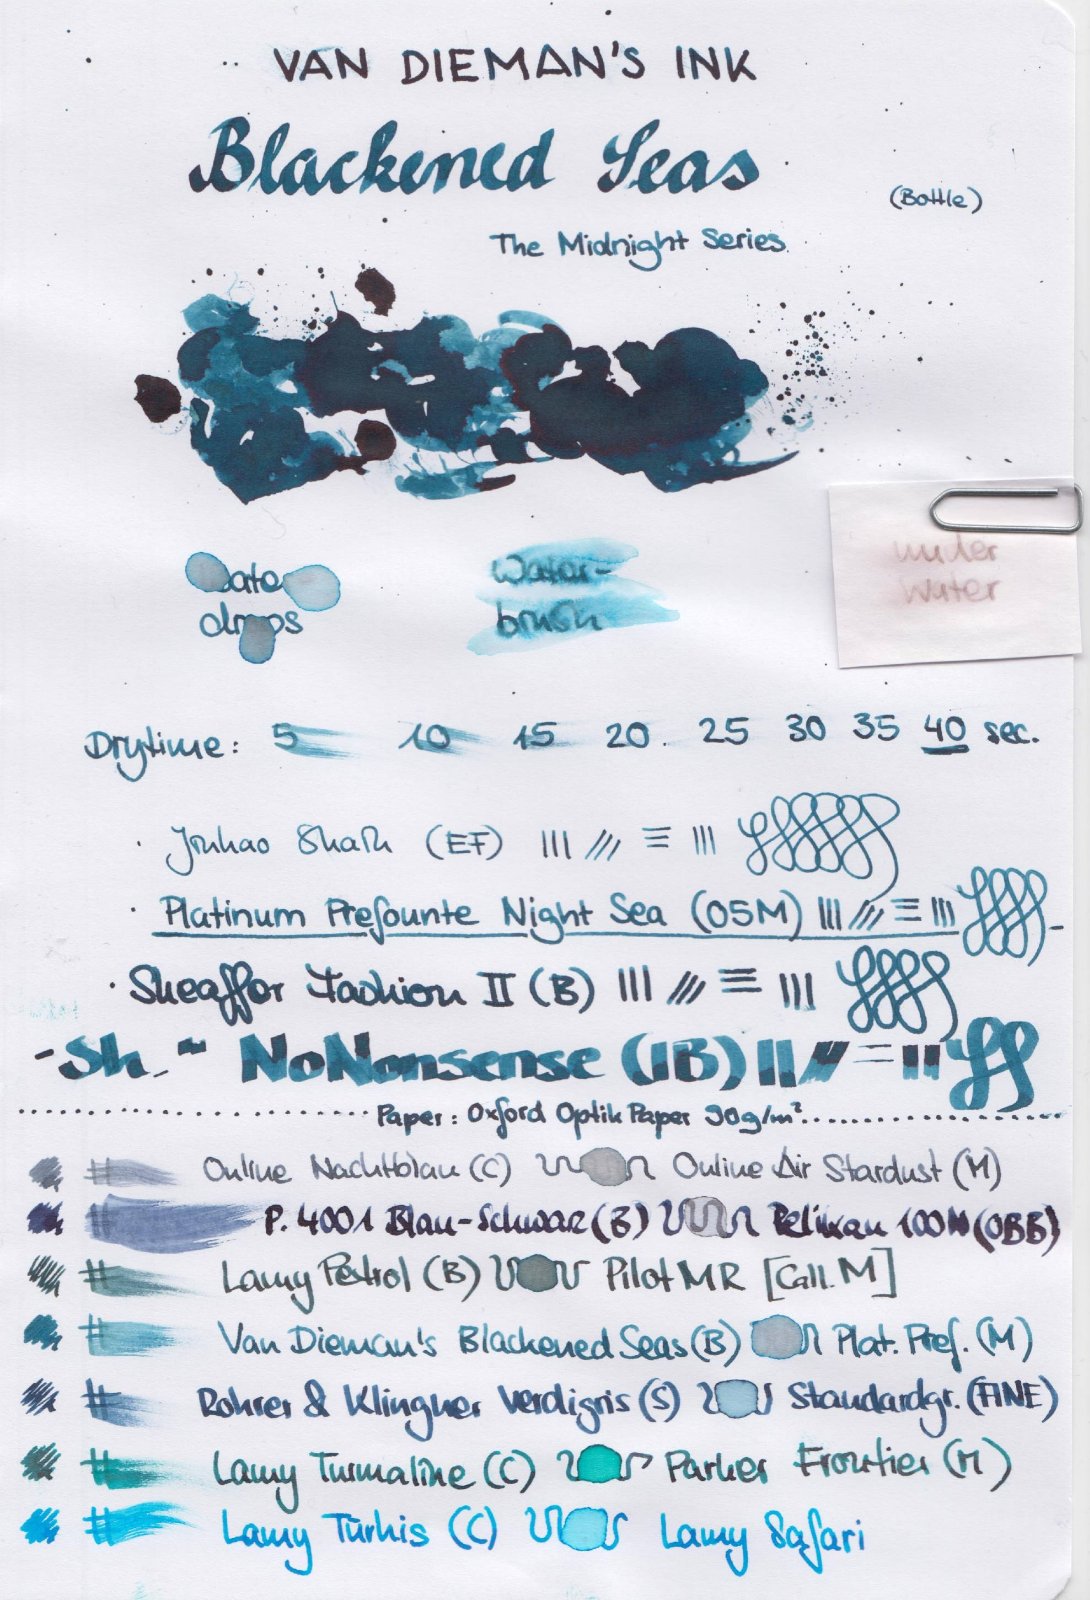 VAN DIEMAN'S INK
Blackened Seas
(Bottle)
The Midnight Series
Water drops
Water-
brush
under
water
Drytime: 5 10 15 20. 25 30 35 40 sec.
· Jinhao Shark (EF)
· Platinum Prefounte Night Sea (05M)
· Sheaffer Fashion II (B)
- Sh. " NoNonsense (IB)
Paper: Oxford Optik Paper 90g/m²
Online Nachtblau (C) Online Air Stardust (M)
P. 4001 Blau-Schwarz (B) Pelikan 100N (OBB)
Lamy Petrol (B) Pilot MR [Call. M]
Van Dieman's Blackened Seas (B) Plat. Pref. (M)
Rohrer & Klingner Verdigris (S) Standardgr. (FINE)
Lamy Turmaline (C) Parker Frontier (M)
Lamy Türkis (C) Lamy Safari